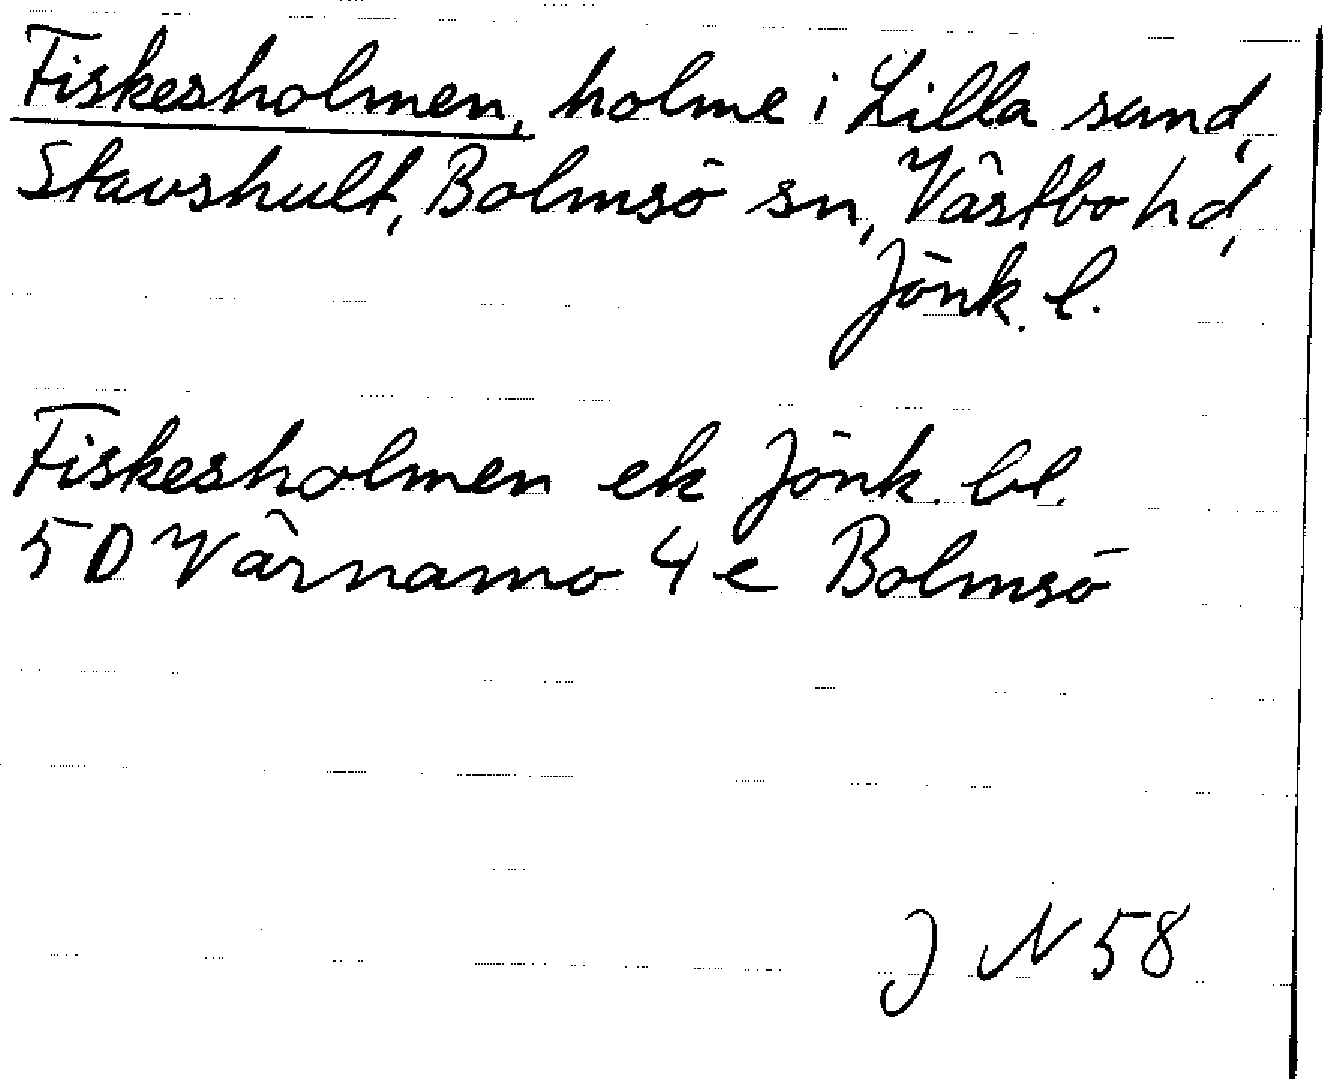 Fiskesholmen, holme i Lilla sund,
Stavshult, Bolmsö sn, Västbo hd,
Jönk. l.
Fiskesholmen ek Jönk. bl.
5D Värnamo 4e Bolmsö
J N 58